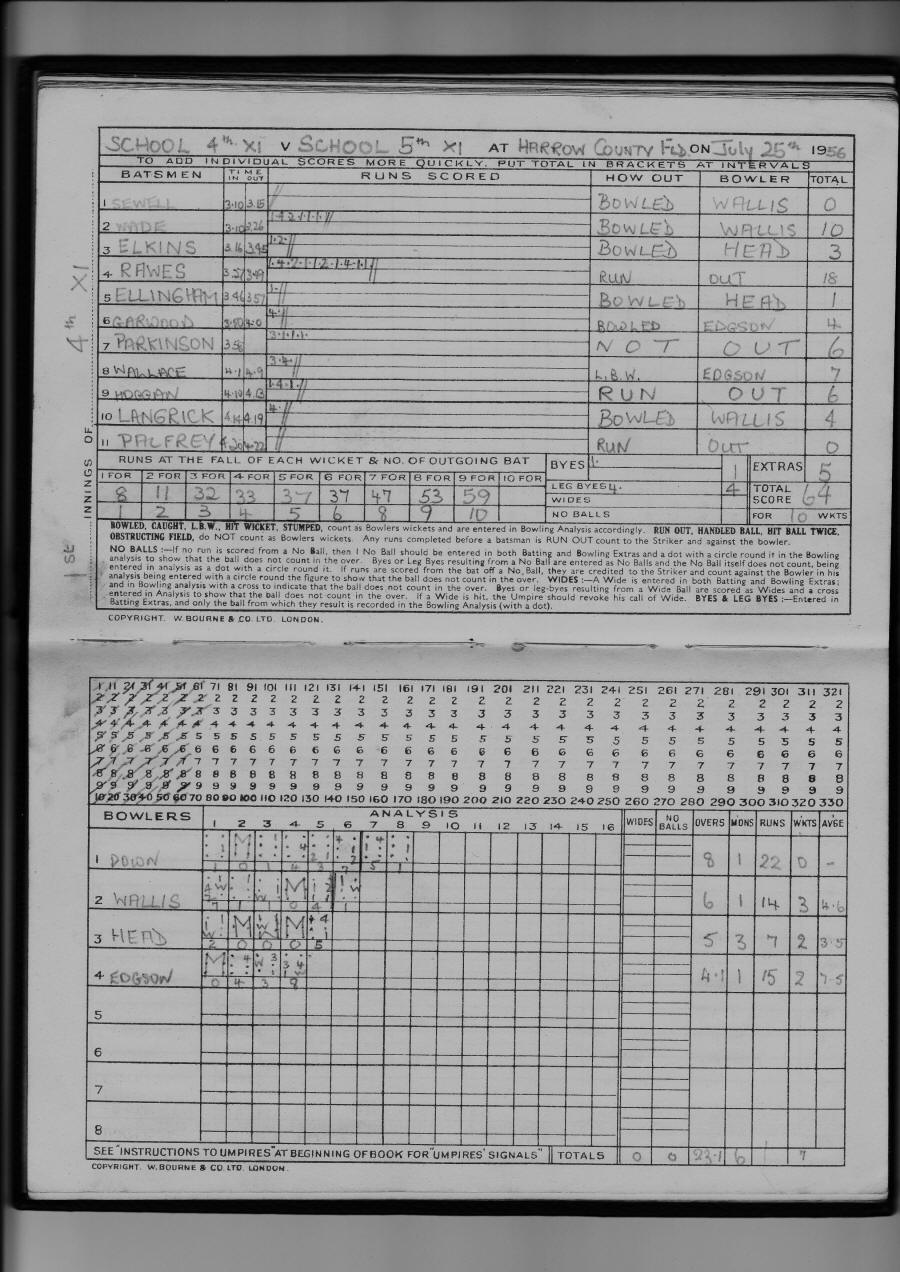 SCHOOL 4th XI V SCHOOL 5th XI AT HARROW COUNTY FLD. ON July 25th 1956
TO ADD INDIVIDUAL SCORES MORE QUICKLY, PUT TOTAL IN BRACKETS AT INTERVALS
BATSMEN TIME IN OUT RUNS SCORED HOW OUT BOWLER TOTAL
1 SEWELL 3.10 3.15 BOWLED WALLIS 0
2 WADE 3.10 3.26 1.4.2.1.1.1 BOWLED WALLIS 10
3 ELKINS 3.16 3.45 1.2 BOWLED HEAD 3
4 RAWES 3.27 3.49 1.4.2.1.1.2.1.4.1.1 RUN OUT 18
5 ELLINGHAM 3.46 3.57 1 BOWLED HEAD 1
6 GARWOOD 3.50 4.0 4 BOWLED EDGSON 4
7 PARKINSON 3.58 3.1.1.1 NOT OUT 6
8 WALLACE 4.1 4.9 3.4 L.B.W. EDGSON 7
9 HOGGAN 4.10 4.13 1.4.1 RUN OUT 6
10 LANGRICK 4.14 4.19 4 BOWLED WALLIS 4
11 PALFREY 4.20 4.22 RUN OUT 0
INNINGS OF 4th XI
1st
RUNS AT THE FALL OF EACH WICKET & NO. OF OUTGOING BAT
1 FOR 2 FOR 3 FOR 4 FOR 5 FOR 6 FOR 7 FOR 8 FOR 9 FOR 10 FOR
8 11 32 33 37 37 47 53 59
1 2 3 4 5 6 8 9 10
BYES 1. 1 EXTRAS 5
LEG BYES 4. 4 TOTAL SCORE 64
WIDES
NO BALLS FOR 10 WKTS
BOWLED, CAUGHT, L.B.W., HIT WICKET, STUMPED, count as Bowlers wickets and are entered in Bowling Analysis accordingly. RUN OUT, HANDLED BALL, HIT BALL TWICE,
OBSTRUCTING FIELD, do NOT count as Bowlers wickets. Any runs completed before a batsman is RUN OUT count to the Striker and against the bowler.
NO BALLS :—If no run is scored from a No Ball, then 1 No Ball should be entered in both Batting and Bowling Extras and a dot with a circle round it in the Bowling
analysis to show that the ball does not count in the over. Byes or Leg Byes resulting from a No Ball are entered as No Balls and the No Ball itself does not count, being
entered in analysis as a dot with a circle round it. If runs are scored from the bat off a No Ball, they are credited to the Striker and count against the Bowler in his
analysis being entered with a circle round the figure to show that the ball does not count in the over. WIDES :—A Wide is entered in both Batting and Bowling Extras
and in Bowling analysis with a cross to indicate that the ball does not count in the over. Byes or leg-byes resulting from a Wide Ball are scored as Wides and a cross
entered in Analysis to show that the ball does not count in the over. If a Wide is hit, the Umpire should revoke his call of Wide. BYES & LEG BYES :—Entered in
Batting Extras, and only the ball from which they result is recorded in the Bowling Analysis (with a dot).
COPYRIGHT. W. BOURNE & CO. LTD. LONDON.
1 11 21 31 41 51 61 71 81 91 101 111 121 131 141 151 161 171 181 191 201 211 221 231 241 251 261 271 281 291 301 311 321
2 2 2 2 2 2 2 2 2 2 2 2 2 2 2 2 2 2 2 2 2 2 2 2 2 2 2 2 2 2 2 2 2
3 3 3 3 3 3 3 3 3 3 3 3 3 3 3 3 3 3 3 3 3 3 3 3 3 3 3 3 3 3 3 3 3
4 4 4 4 4 4 4 4 4 4 4 4 4 4 4 4 4 4 4 4 4 4 4 4 4 4 4 4 4 4 4 4 4
5 5 5 5 5 5 5 5 5 5 5 5 5 5 5 5 5 5 5 5 5 5 5 5 5 5 5 5 5 5 5 5 5
6 6 6 6 6 6 6 6 6 6 6 6 6 6 6 6 6 6 6 6 6 6 6 6 6 6 6 6 6 6 6 6 6
7 7 7 7 7 7 7 7 7 7 7 7 7 7 7 7 7 7 7 7 7 7 7 7 7 7 7 7 7 7 7 7 7
8 8 8 8 8 8 8 8 8 8 8 8 8 8 8 8 8 8 8 8 8 8 8 8 8 8 8 8 8 8 8 8 8
9 9 9 9 9 9 9 9 9 9 9 9 9 9 9 9 9 9 9 9 9 9 9 9 9 9 9 9 9 9 9 9 9
10 20 30 40 50 60 70 80 90 100 110 120 130 140 150 160 170 180 190 200 210 220 230 240 250 260 270 280 290 300 310 320 330
BOWLERS ANALYSIS WIDES NO BALLS OVERS MDNS RUNS WKTS AVGE
1 2 3 4 5 6 7 8 9 10 11 12 13 14 15 16
1 DOWN 1 0 1 4 3 7 5 1 8 1 22 0 -
2 WALLIS 7 1 1 0 4 1 6 1 14 3 4.6
3 HEAD 2 0 0 0 5 5 3 7 2 3.5
4 EDGSON 0 4 3 8 4.1 1 15 2 7.5
5
6
7
8
SEE "INSTRUCTIONS TO UMPIRES" AT BEGINNING OF BOOK FOR "UMPIRES' SIGNALS" TOTALS 0 0 23.1 6 7
COPYRIGHT. W. BOURNE & CO. LTD. LONDON.